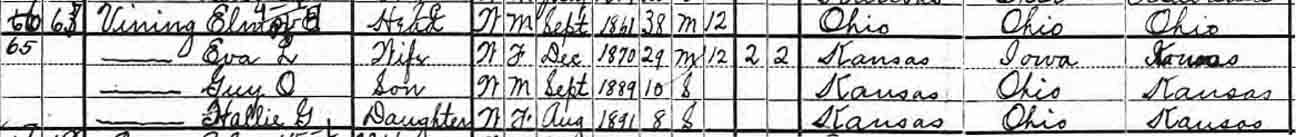 66 63 Vining Head W M Sept 1861 38 M 12 Ohio Ohio Ohio
65 Eva L Wife W F Dec 1870 29 M 12 2 2 Kansas Iowa Kansas
Guy O Son W M Sept 1889 10 S Kansas Ohio Kansas
Hallie G, Daughter W F Aug 1891 8 S Kansas Ohio Kansas